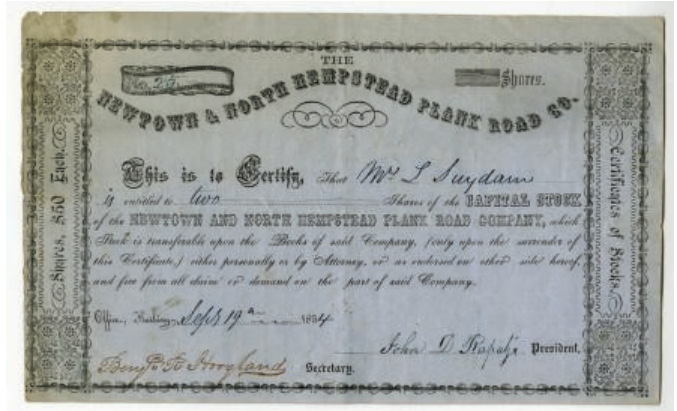 THE
No. 22
Shares.
NEWTOWN & NORTH HEMPSTEAD PLANK ROAD CO.
This is to Certify, That Wm L Suydam
is entitled to two Shares of the CAPITAL STOCK
of the NEWTOWN AND NORTH HEMPSTEAD PLANK ROAD COMPANY, which
Stock is transferable upon the Books of said Company, (only upon the surrender of
this Certificate,) either personally or by Attorney, or as endorsed on other side hereof,
and free from all claim or demand on the part of said Company.
Office, Flushing, Sept 19 1854
John D Rapalje President,
Benjn H Hoogland Secretary.
Shares, $50 Each.
Certificates of Stocks.